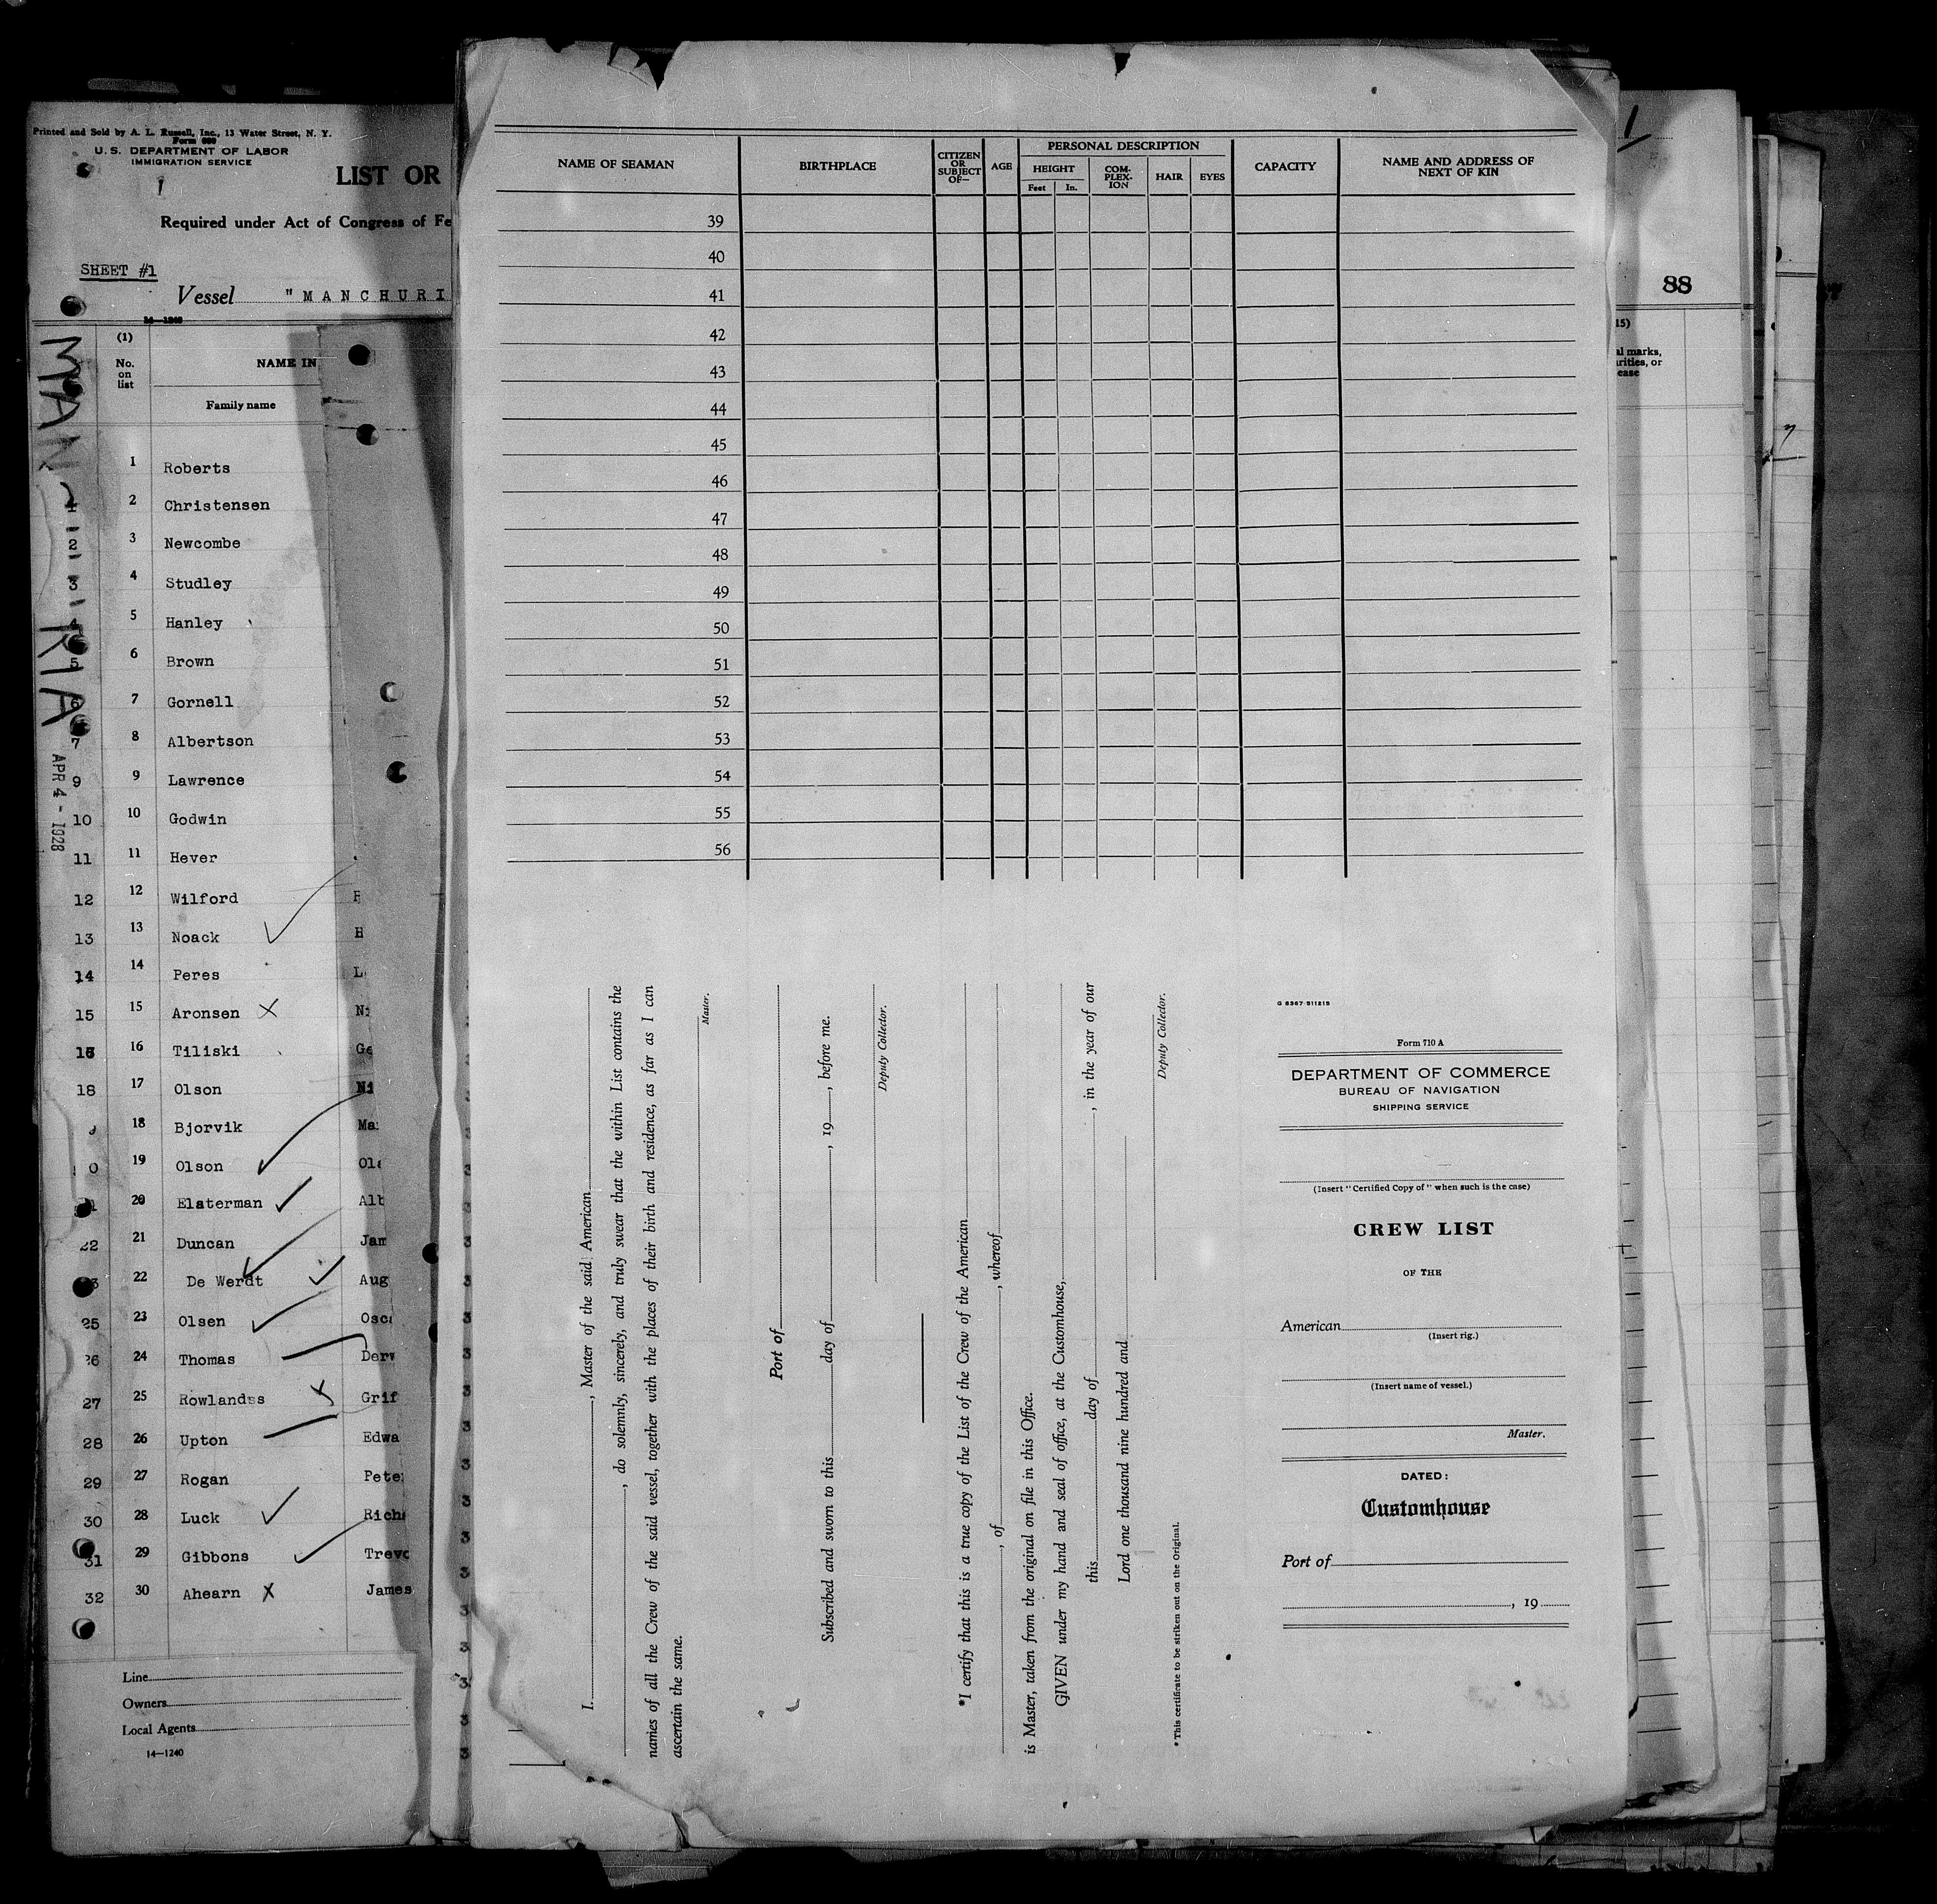 Printed and Sold by A. L. Russell, Inc., 13 Water Street, N. Y.
U. S. DEPARTMENT OF LABOR
IMMIGRATION SERVICE
LIST OR
Required under Act of Congress of Fe
SHEET #1
Vessel "MANCHURI
(1)
No. on list
NAME IN
Family name
APR 4 - 1928
1 Roberts
2 Christensen
3 Newcombe
4 Studley
5 Hanley
6 Brown
7 Gornell
8 Albertson
9 Lawrence
10 Godwin
11 Hever
12 Wilford
13 Noack H
14 Peres
15 Aronsen X
16 Tiliski Ge
17 Olson Ni
18 Bjorvik Ma
19 Olson
20 Elsterman Alb
21 Duncan Jam
22 De Werdt Aug
23 Olsen Osc
24 Thomas Der
25 Rowlandss X Grif
26 Upton Edwa
27 Rogan Pete
28 Luck Rich
29 Gibbons Trevo
30 Ahearn X James
Line
Owners
Local Agents
14—1240
NAME OF SEAMAN
BIRTHPLACE
CITIZEN OR SUBJECT OF—
AGE
PERSONAL DESCRIPTION
HEIGHT
Feet In.
COM-PLEX-ION
HAIR
EYES
CAPACITY
NAME AND ADDRESS OF NEXT OF KIN
39
40
41
42
43
44
45
46
47
48
49
50
51
52
53
54
55
56
I, , Master of the said American
, do solemnly, sincerely, and truly swear that the within List contains the
names of all the Crew of the said vessel, together with the places of their birth and residence, as far as I can
ascertain the same.
Master.
Port of
Subscribed and sworn to this day of , 19 , before me.
Deputy Collector.
*I certify that this is a true copy of the List of the Crew of the American
, of , whereof
is Master, taken from the original on file in this Office.
GIVEN under my hand and seal of office, at the Customhouse,
this day of , in the year of our
Lord one thousand nine hundred and
Deputy Collector.
* This certificate to be striken out on the Original.
Form 710 A
DEPARTMENT OF COMMERCE
BUREAU OF NAVIGATION
SHIPPING SERVICE
(Insert "Certified Copy of" when such is the case)
CREW LIST
OF THE
American
(Insert rig.)
(Insert name of vessel.)
Master.
DATED:
Customhouse
Port of
, 19
88